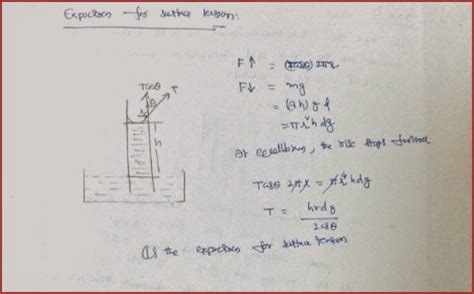 Expression for surface tension:
Tcosθ
T
θ
h
F↑ = (Tcosθ) 2πr
F↓ = mg
= πr²h dg
At equilibrium, the rise stops
Tcosθ 2πr = πr²hdg
T = hrdg / 2cosθ
is the expression for surface tension